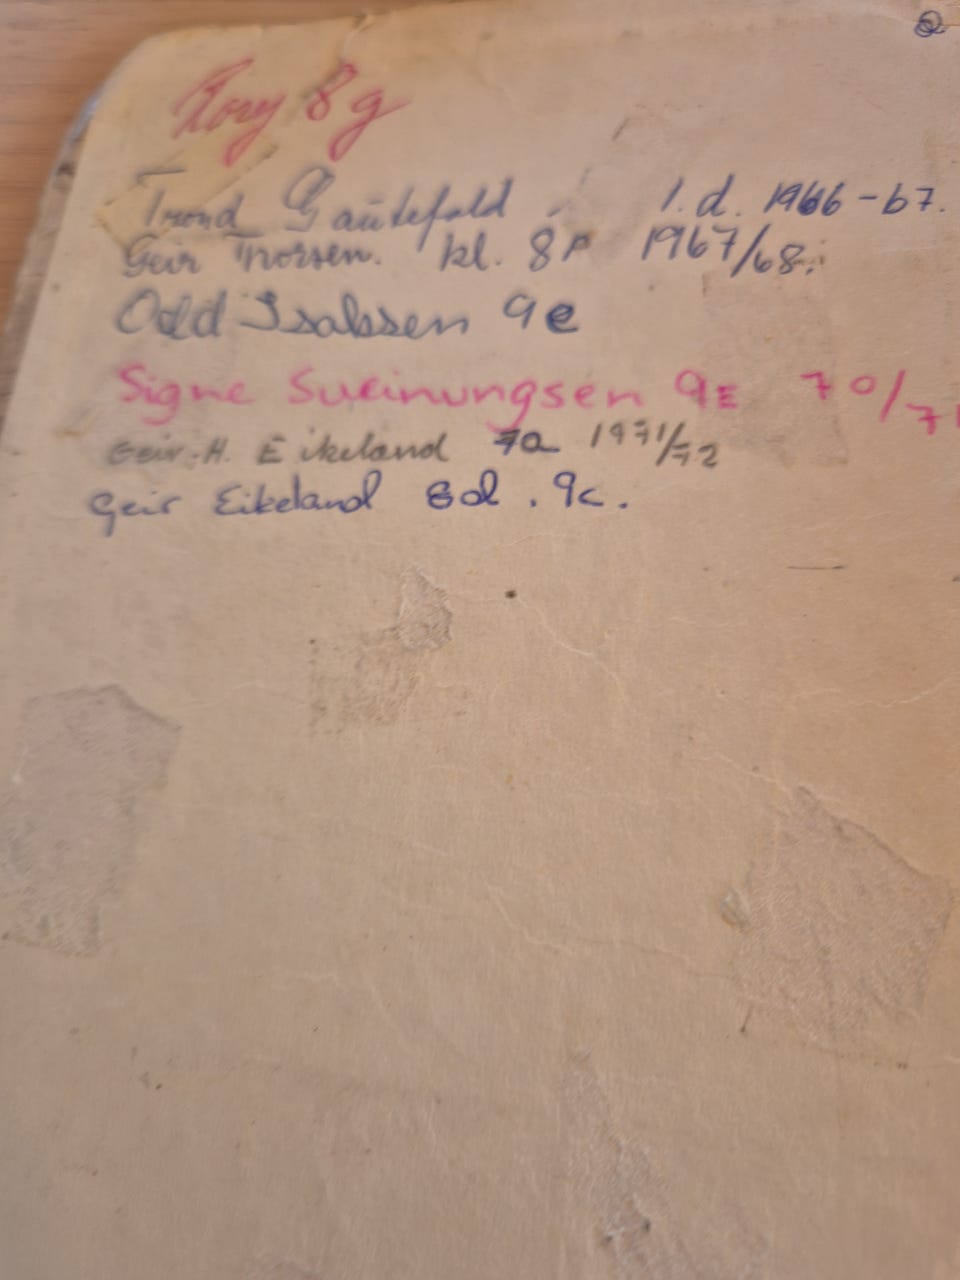 8g
Trond Gautefald 1.d. 1966-67.
Geir Thorsen. kl. 8 1967/68.
Odd Isaksen 9e
Signe Sveinungsen 9E 70/71
Geir.H. Eikeland 7a 1971/72
Geir Eikeland 9c.